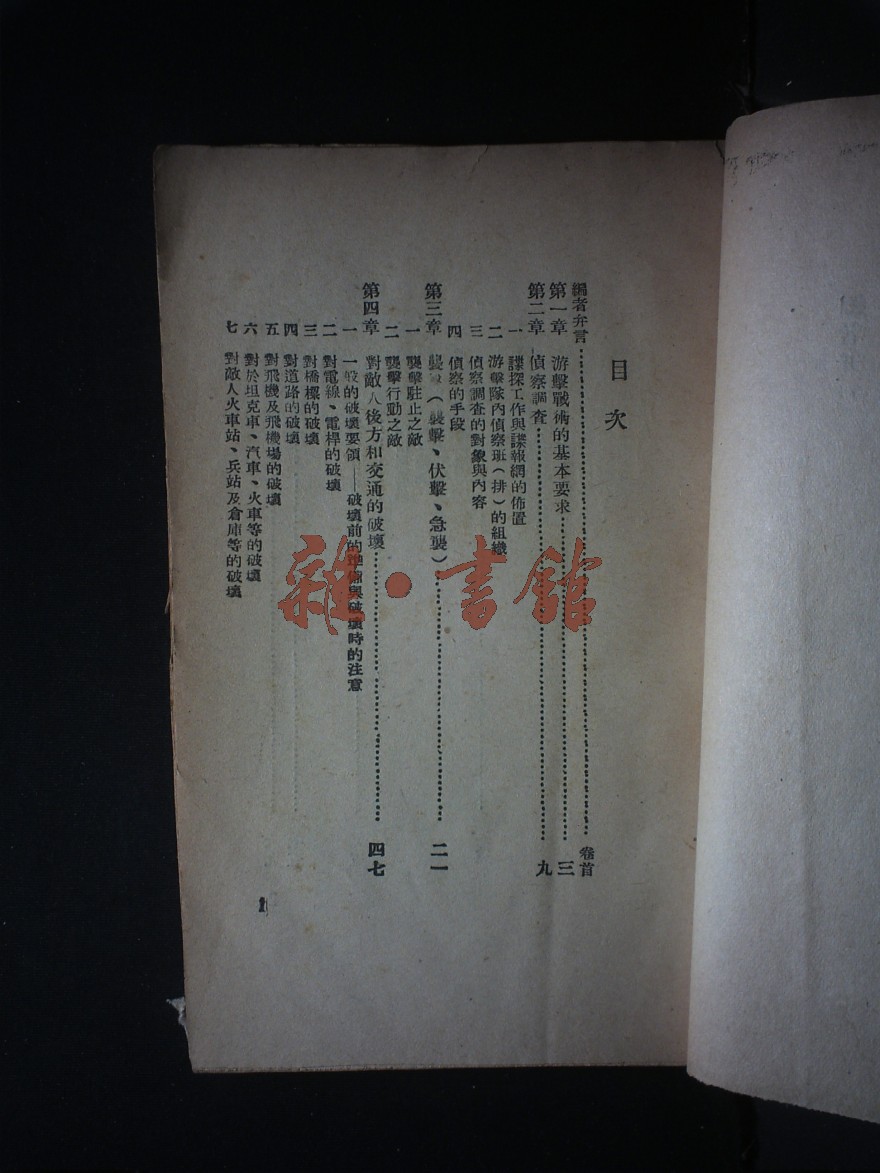 目次
編者弁言……卷首
第一章 游擊戰術的基本要求……三
第二章 偵察調査……九
一 諜探工作與諜報網的佈置
二 游擊隊內偵察班(排)的組織
三 偵察調查的對象與內容
四 偵察的手段
第三章 襲擊(襲擊、伏擊、急襲)……二一
一 襲擊駐止之敵
二 襲擊行動之敵
第四章 對敵人後方和交通的破壞……四七
一 一般的破壞要領——破壞前的準備與破壞時的注意
二 對電線、電桿的破壞
三 對橋樑的破壞
四 對道路的破壞
五 對飛機及飛機場的破壞
六 對於坦克車、汽車、火車等的破壞
七 對敵人火車站、兵站及倉庫等的破壞
1
雜·書館